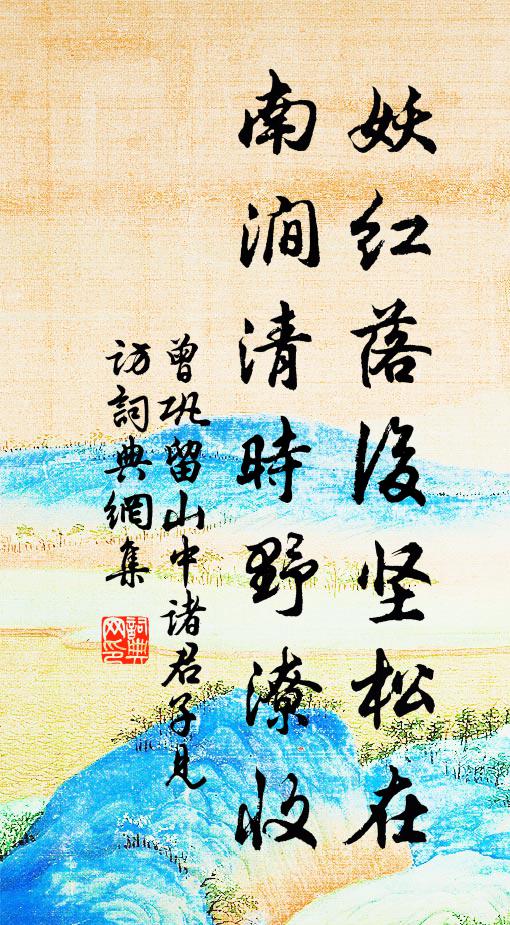 妖红落後坚松在
南涧清時野潦收
曾巩留山中諸君子見
訪詞典網集
詞典网印